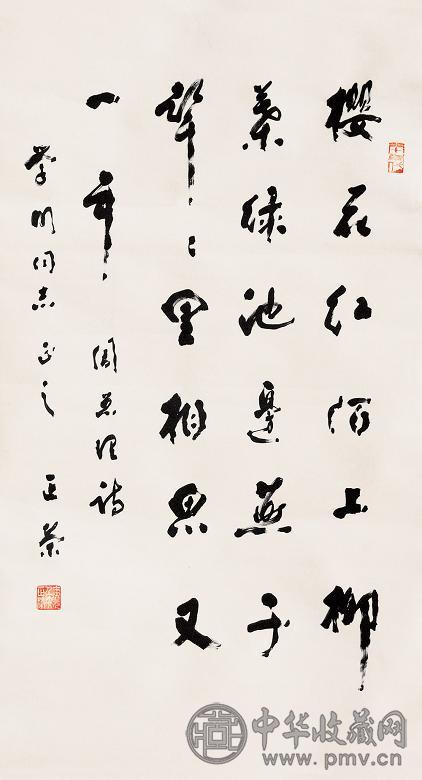 櫻花红陌上柳
葉绿池邊燕子
聲々里相思又
一年 周总理诗
学明同志正之
中华收藏网
www.pmv.cn